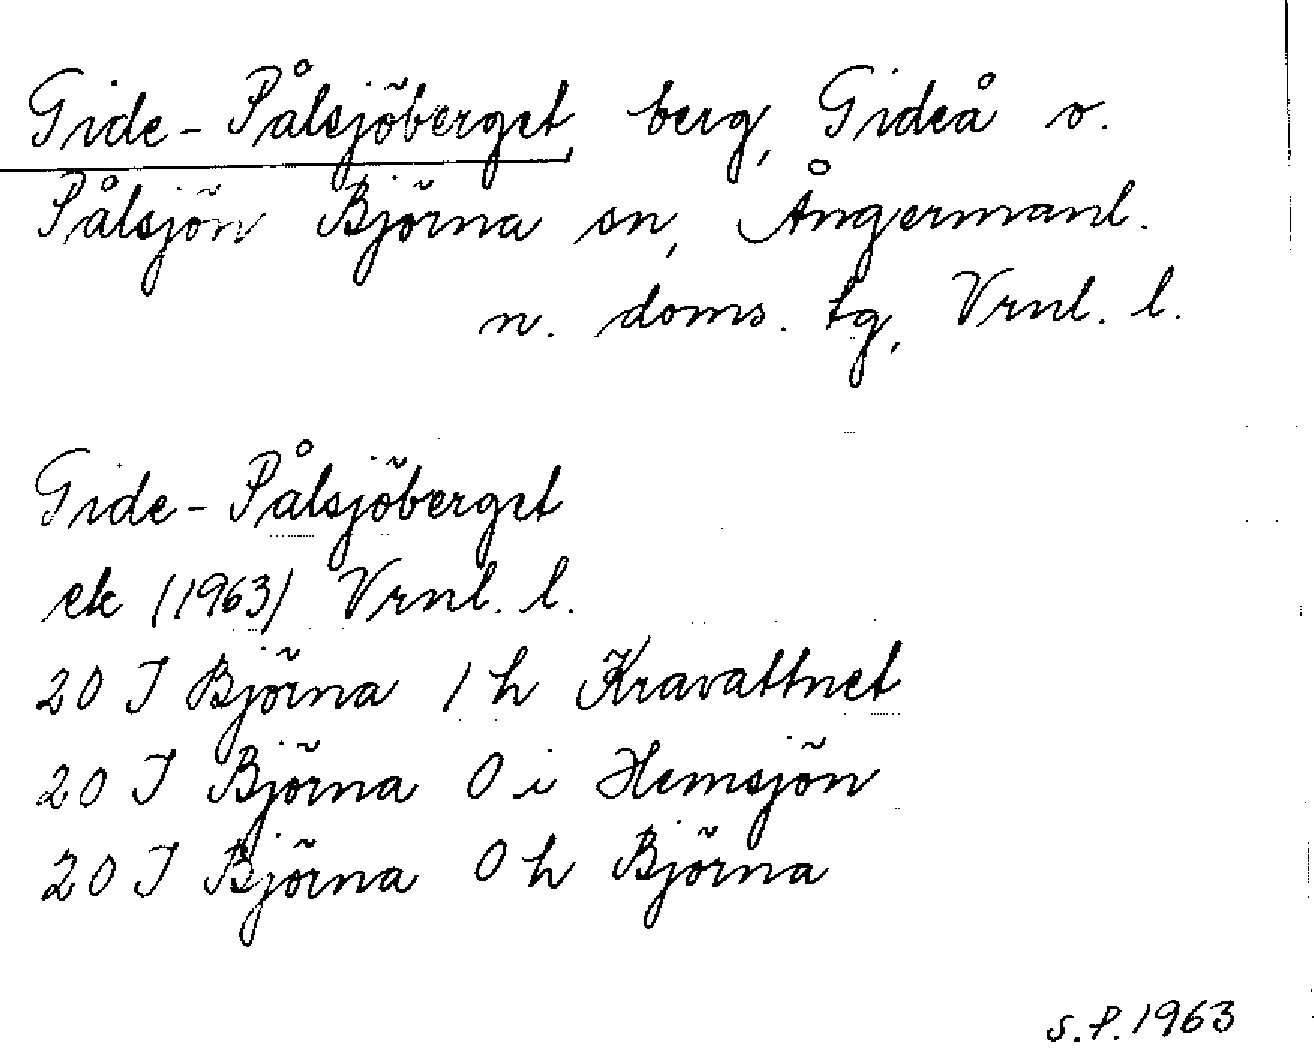 Gide-Pålsjöberget, berg, Gideå o.
Pålsjön Björna sn, Ångermanl.
n. doms. tg, Vrnl. l.
Gide-Pålsjöberget
ek (1963) Vrnl. l.
20 I Björna 1 h Kravattnet
20 I Björna 0 i Hemsjön
20 I Björna 0 h Björna
S.P. 1963